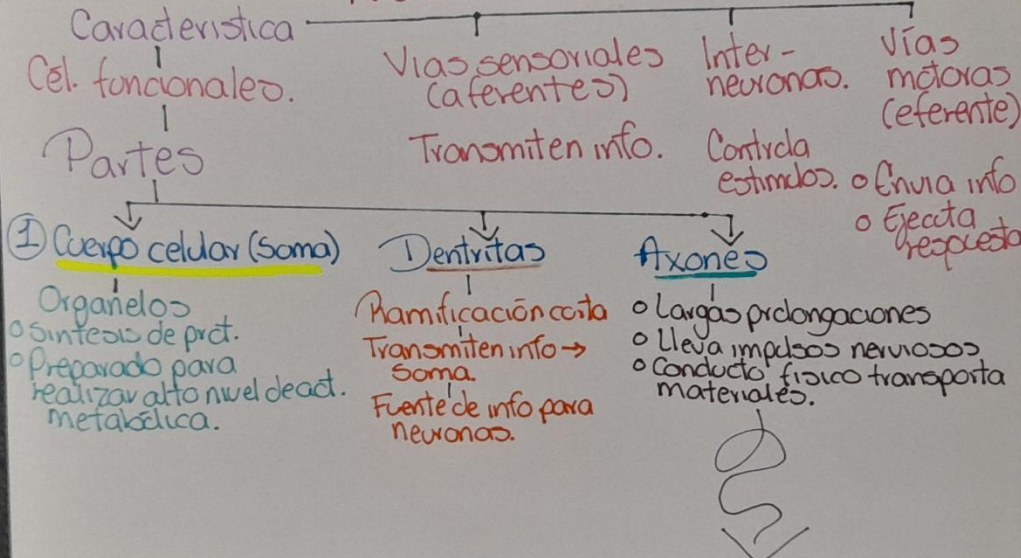 Caracteristica
Cél. funcionales.
Vias sensoriales
(aferentes)
Transmiten info.
Inter-
neuronas.
Controla
estimulos.
Vías
motoras
(eferente)
o Envia info
o Ejecuta
respuesta
Partes
① Cuerpo celular (Soma)
Organelos
o Sintesis de prot.
o Preparado para
realizar alto nivel de act.
metabólica.
Dentritas
Ramificación corta
Transmiten info →
soma.
Fuente de info para
neuronas.
Axones
o Largas prolongaciones
o Lleva impulsos nerviosos
o Conducto fisico transporta
materiales.